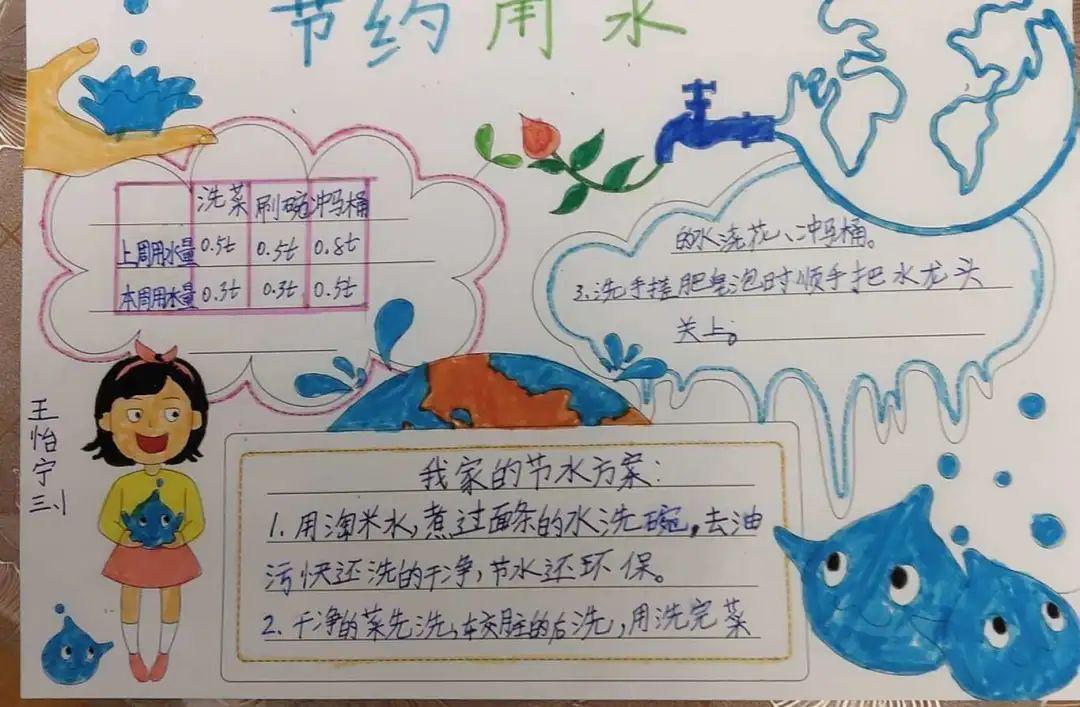 节约用水
洗菜 刷碗 冲马桶
上周用水量 0.5t 0.5t 0.8t
本周用水量 0.3t 0.3t 0.5t
王怡宁
三、1
我家的节水方案:
1. 用淘米水,煮过面条的水洗碗,去油
污快还洗的干净,节水还环保。
2. 干净的菜先洗,较脏的后洗,用洗完菜
的水浇花、冲马桶。
3.洗手搓肥皂泡时顺手把水龙头
关上。